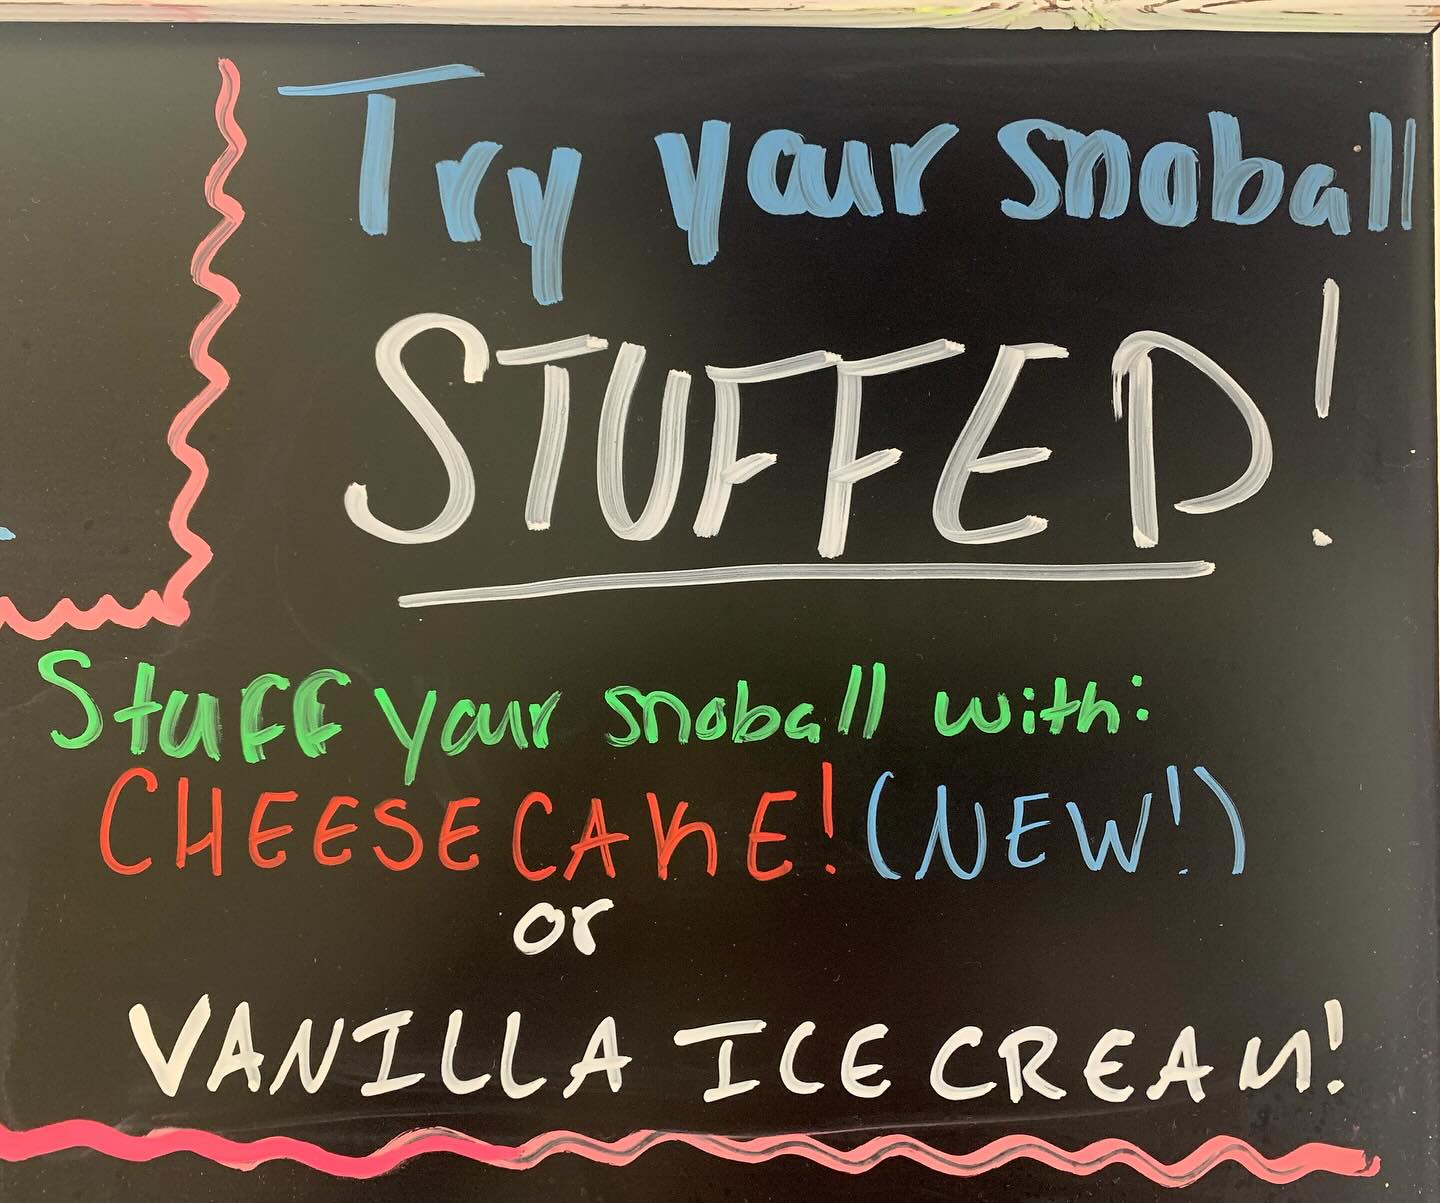 Try your snoball
STUFFED!
Stuff your snoball with:
CHEESECAKE! (NEW!)
or
VANILLA ICE CREAM!